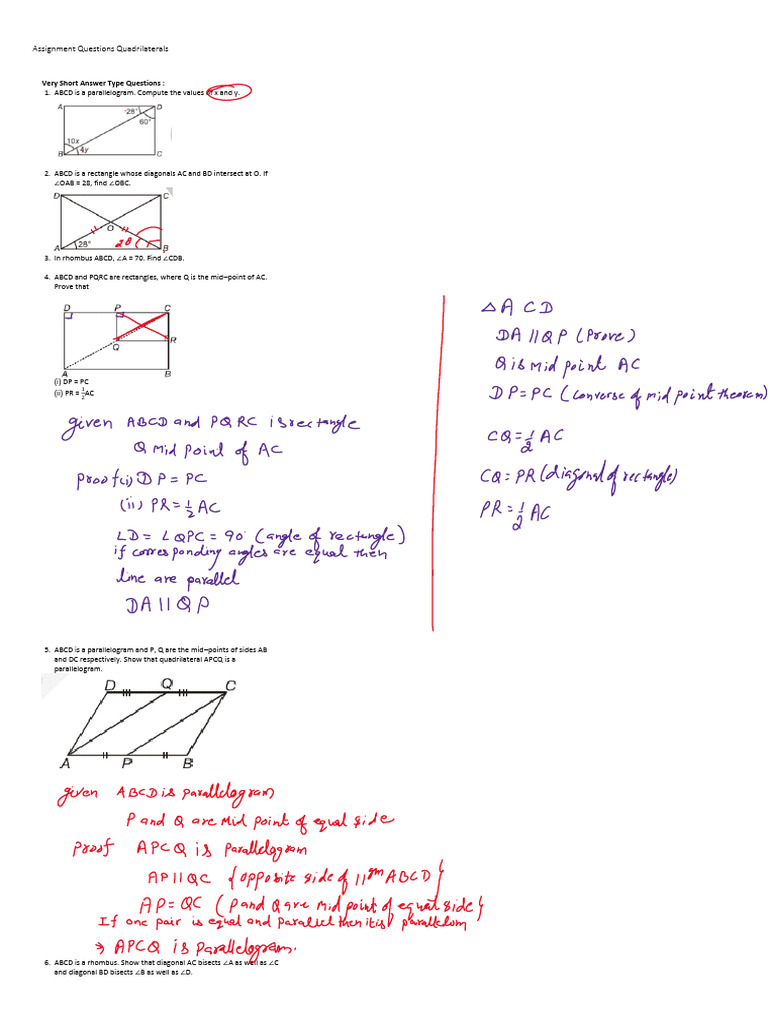 Assignment Questions Quadrilaterals
Very Short Answer Type Questions :
1. ABCD is a parallelogram. Compute the values of x and y.
A
28°
D
60°
10x
4y
B
C
2. ABCD is a rectangle whose diagonals AC and BD intersect at O. If
∠OAB = 28, find ∠OBC.
D
C
O
28°
28
A
B
3. In rhombus ABCD, ∠A = 70. Find ∠CDB.
4. ABCD and PQRC are rectangles, where Q is the mid–point of AC.
Prove that
D
P
C
Q
R
A
B
(i) DP = PC
(ii) PR = 1/2 AC
given ABCD and PQRC is rectangle
Q mid point of AC
Proof (i) DP = PC
(ii) PR = 1/2 AC
∠D = ∠QPC = 90° (angle of rectangle)
if corresponding angles are equal then
line are parallel
DA || QP
△ ACD
DA || QP (Prove)
Q is mid point AC
DP = PC (converse of mid point theorem)
CQ = 1/2 AC
CQ = PR (diagonal of rectangle)
PR = 1/2 AC
5. ABCD is a parallelogram and P, Q are the mid–points of sides AB
and DC respectively. Show that quadrilateral APCQ is a
parallelogram.
D
Q
C
A
P
B
given ABCD is parallelogram
P and Q are mid point of equal side
Proof APCQ is parallelogram
AP || QC {opposite side of ||gm ABCD}
AP = QC (P and Q are mid point of equal side}
If one pair is equal and parallel then it is parallelom
⇒ APCQ is parallelogram.
6. ABCD is a rhombus. Show that diagonal AC bisects ∠A as well as ∠C
and diagonal BD bisects ∠B as well as ∠D.